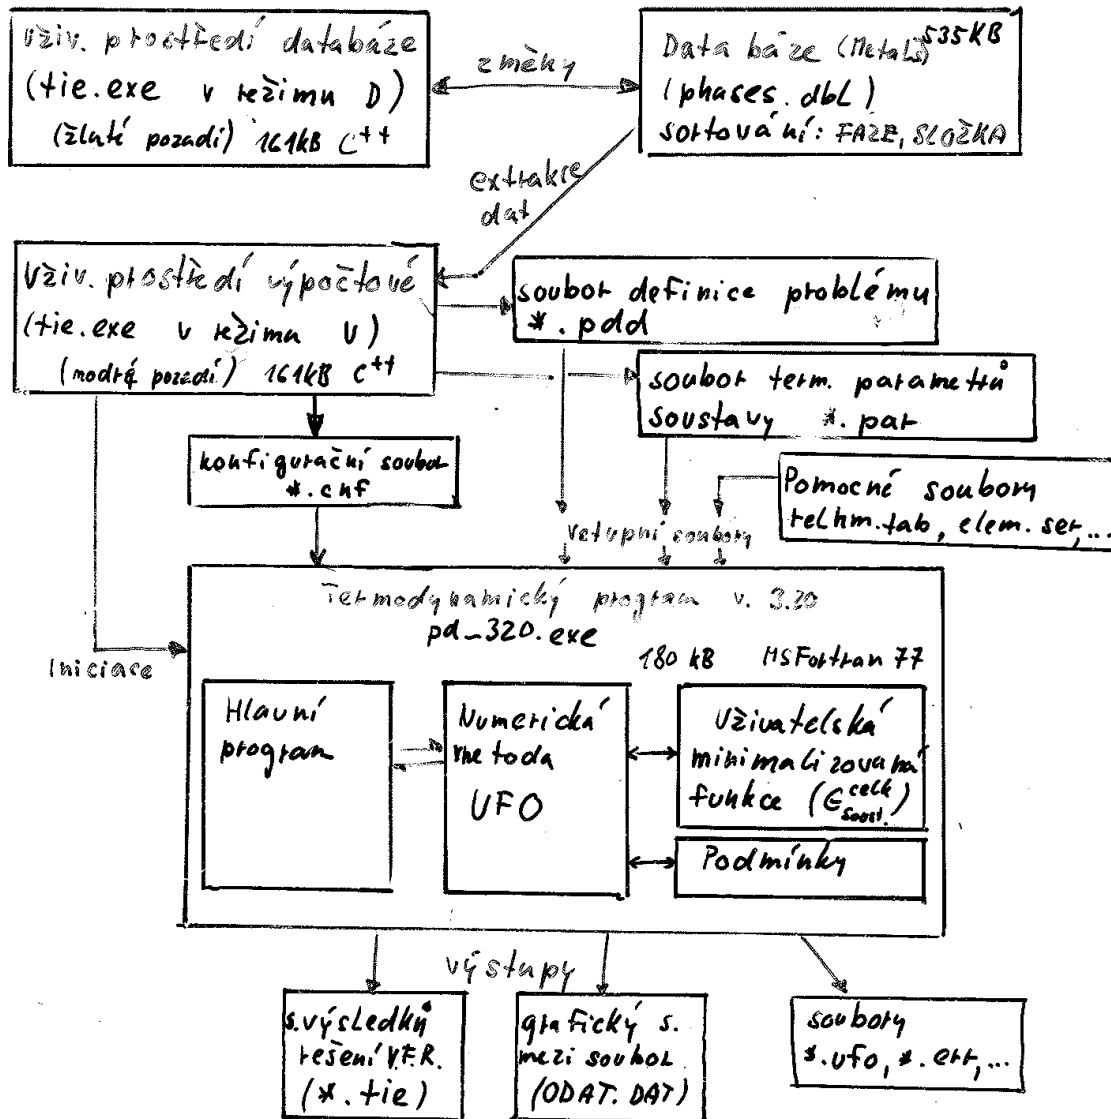 Uživ. prostředí databáze
(tie.exe v režimu D)
(žluté pozadí) 161kB C++
změny
Data báze (Metals) 535KB
(phases.dbL)
sortování: FÁZE, SLOŽKA
extrakce
dat
Uživ. prostředí výpočtové
(tie.exe v režimu V)
(modré pozadí) 161kB C++
soubor definice problému
*.pdd
soubor term. parametrů
soustavy *.par
konfigurační soubor
*.cnf
Pomocné soubory
elem.ser,...
vstupní soubory
Iniciace
Termodynamický program v. 3.20
pd_320.exe
180 kB MSFortran 77
Hlavní
program
Numerická
metoda
UFO
Uživatelská
minimalizovaná
funkce (G celk soust.)
Podmínky
výstupy
s.výsledků
řešení V.F.R.
(*.tie)
grafický s.
mezi soubor
(ODAT.DAT)
soubory
*.ufo, *.err,...